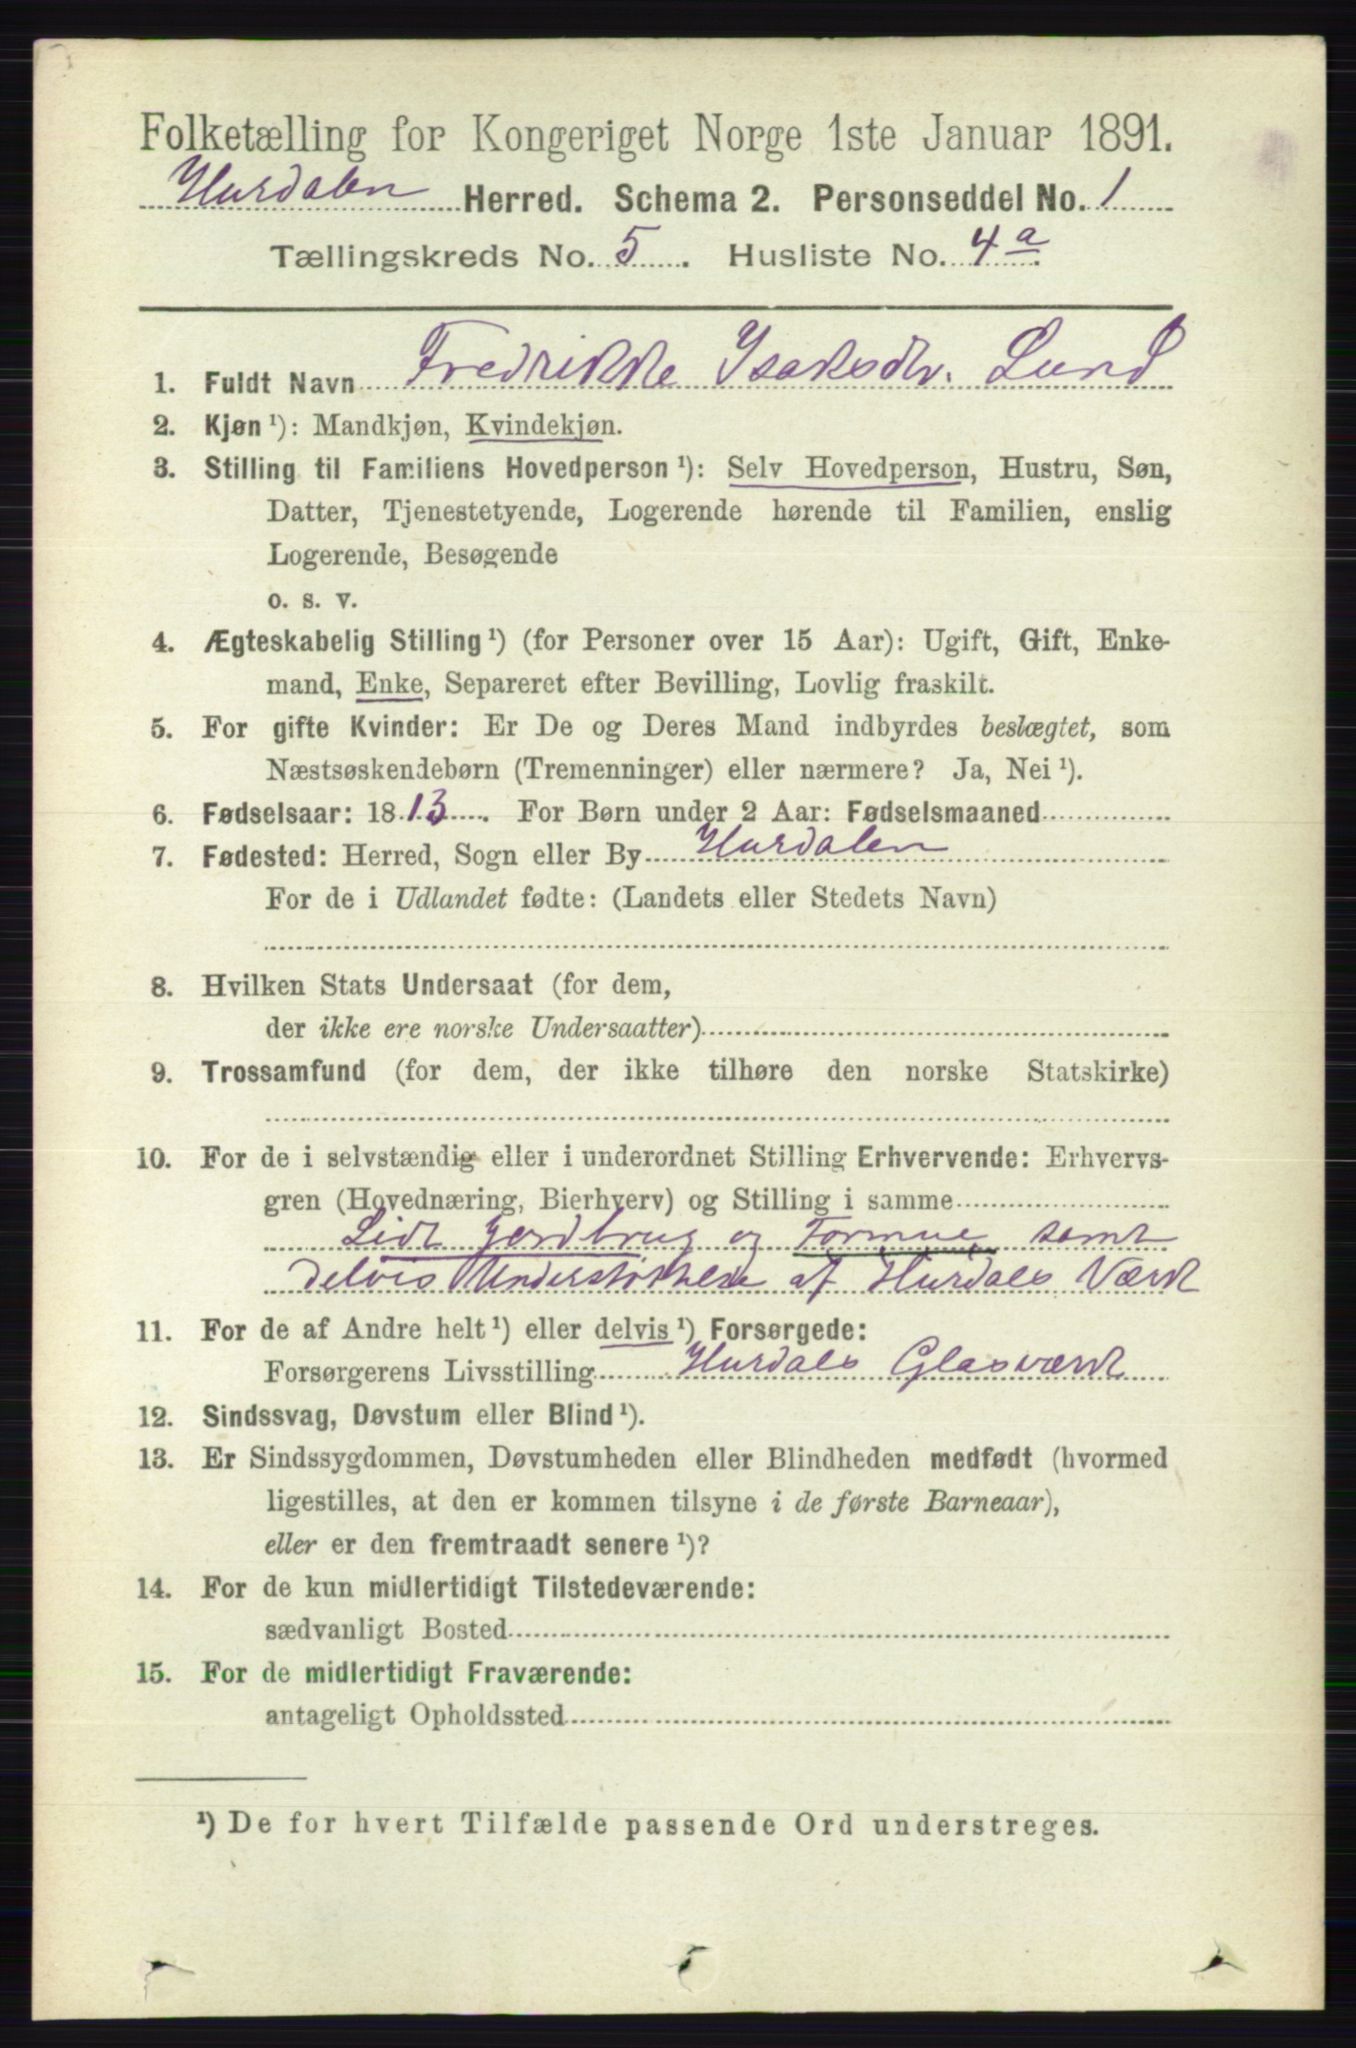 Folketælling for Kongeriget Norge 1ste Januar 1891.
Hurdalen Herred. Schema 2. Personseddel No. 1
Tællingskreds No. 5. Husliste No. 4a.
1. Fuldt Navn Fredrikke Isaksdtr. Lund
2. Kjøn ¹): Mandkjøn, Kvindekjøn.
3. Stilling til Familiens Hovedperson ¹): Selv Hovedperson, Hustru, Søn,
Datter, Tjenestetyende, Logerende hørende til Familien, enslig
Logerende, Besøgende
o. s. v.
4. Ægteskabelig Stilling ¹) (for Personer over 15 Aar): Ugift, Gift, Enke-
mand, Enke, Separeret efter Bevilling, Lovlig fraskilt.
5. For gifte Kvinder: Er De og Deres Mand indbyrdes beslægtet, som
Næstsøskendebørn (Tremenninger) eller nærmere? Ja, Nei ¹).
6. Fødselsaar: 1813. For Børn under 2 Aar: Fødselsmaaned
7. Fødested: Herred, Sogn eller By Hurdalen
For de i Udlandet fødte: (Landets eller Stedets Navn)
8. Hvilken Stats Undersaat (for dem,
der ikke ere norske Undersaatter)
9. Trossamfund (for dem, der ikke tilhøre den norske Statskirke)
10. For de i selvstændig eller i underordnet Stilling Erhvervende: Erhvervs-
gren (Hovednæring, Bierhverv) og Stilling i samme
Lidt Jordbrug og Formue, samt
delvis Understøttelse af Hurdals Værk
11. For de af Andre helt ¹) eller delvis ¹) Forsørgede:
Forsørgerens Livsstilling Hurdals Glasværk
12. Sindssvag, Døvstum eller Blind ¹).
13. Er Sindssygdommen, Døvstumheden eller Blindheden medfødt (hvormed
ligestilles, at den er kommen tilsyne i de første Barneaar),
eller er den fremtraadt senere ¹)?
14. For de kun midlertidigt Tilstedeværende:
sædvanligt Bosted
15. For de midlertidigt Fraværende:
antageligt Opholdssted
¹) De for hvert Tilfælde passende Ord understreges.